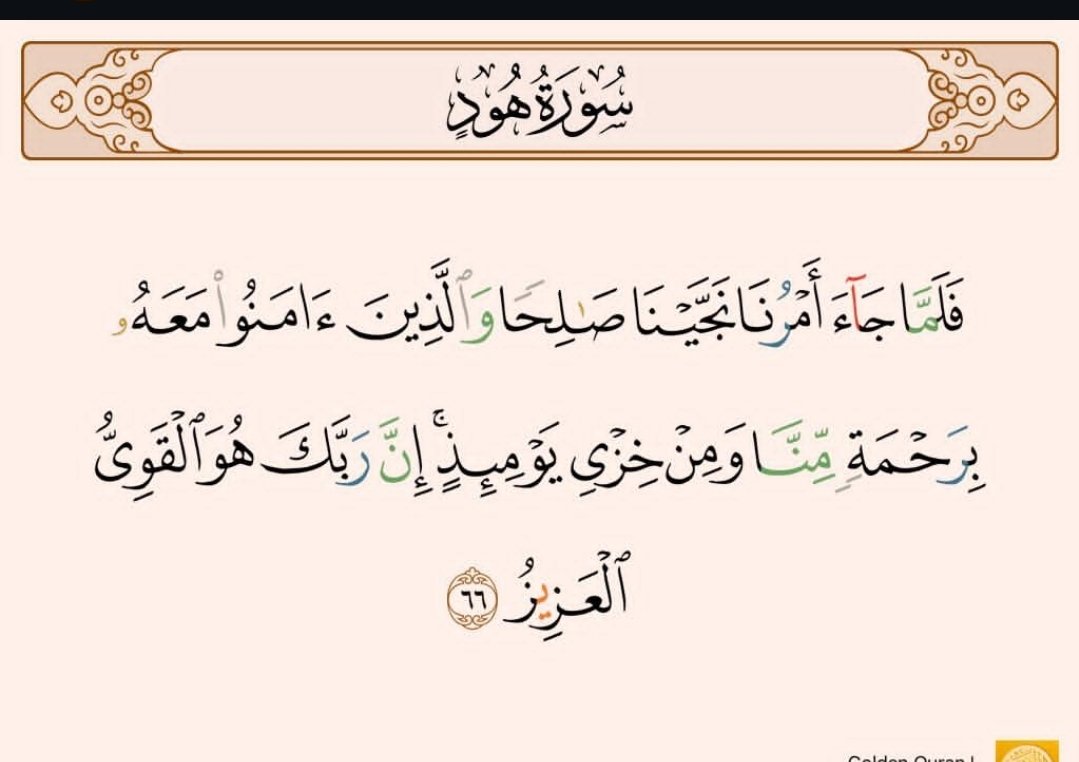 سُورَةُ هُودٍ
فَلَمَّا جَآءَ أَمْرُنَا نَجَّيْنَا صَٰلِحًا وَٱلَّذِينَ ءَامَنُوا۟ مَعَهُۥ
بِرَحْمَةٍ مِّنَّا وَمِنْ خِزْىِ يَوْمِئِذٍ ۚ إِنَّ رَبَّكَ هُوَ ٱلْقَوِىُّ
ٱلْعَزِيزُ ٦٦
Golden Quran